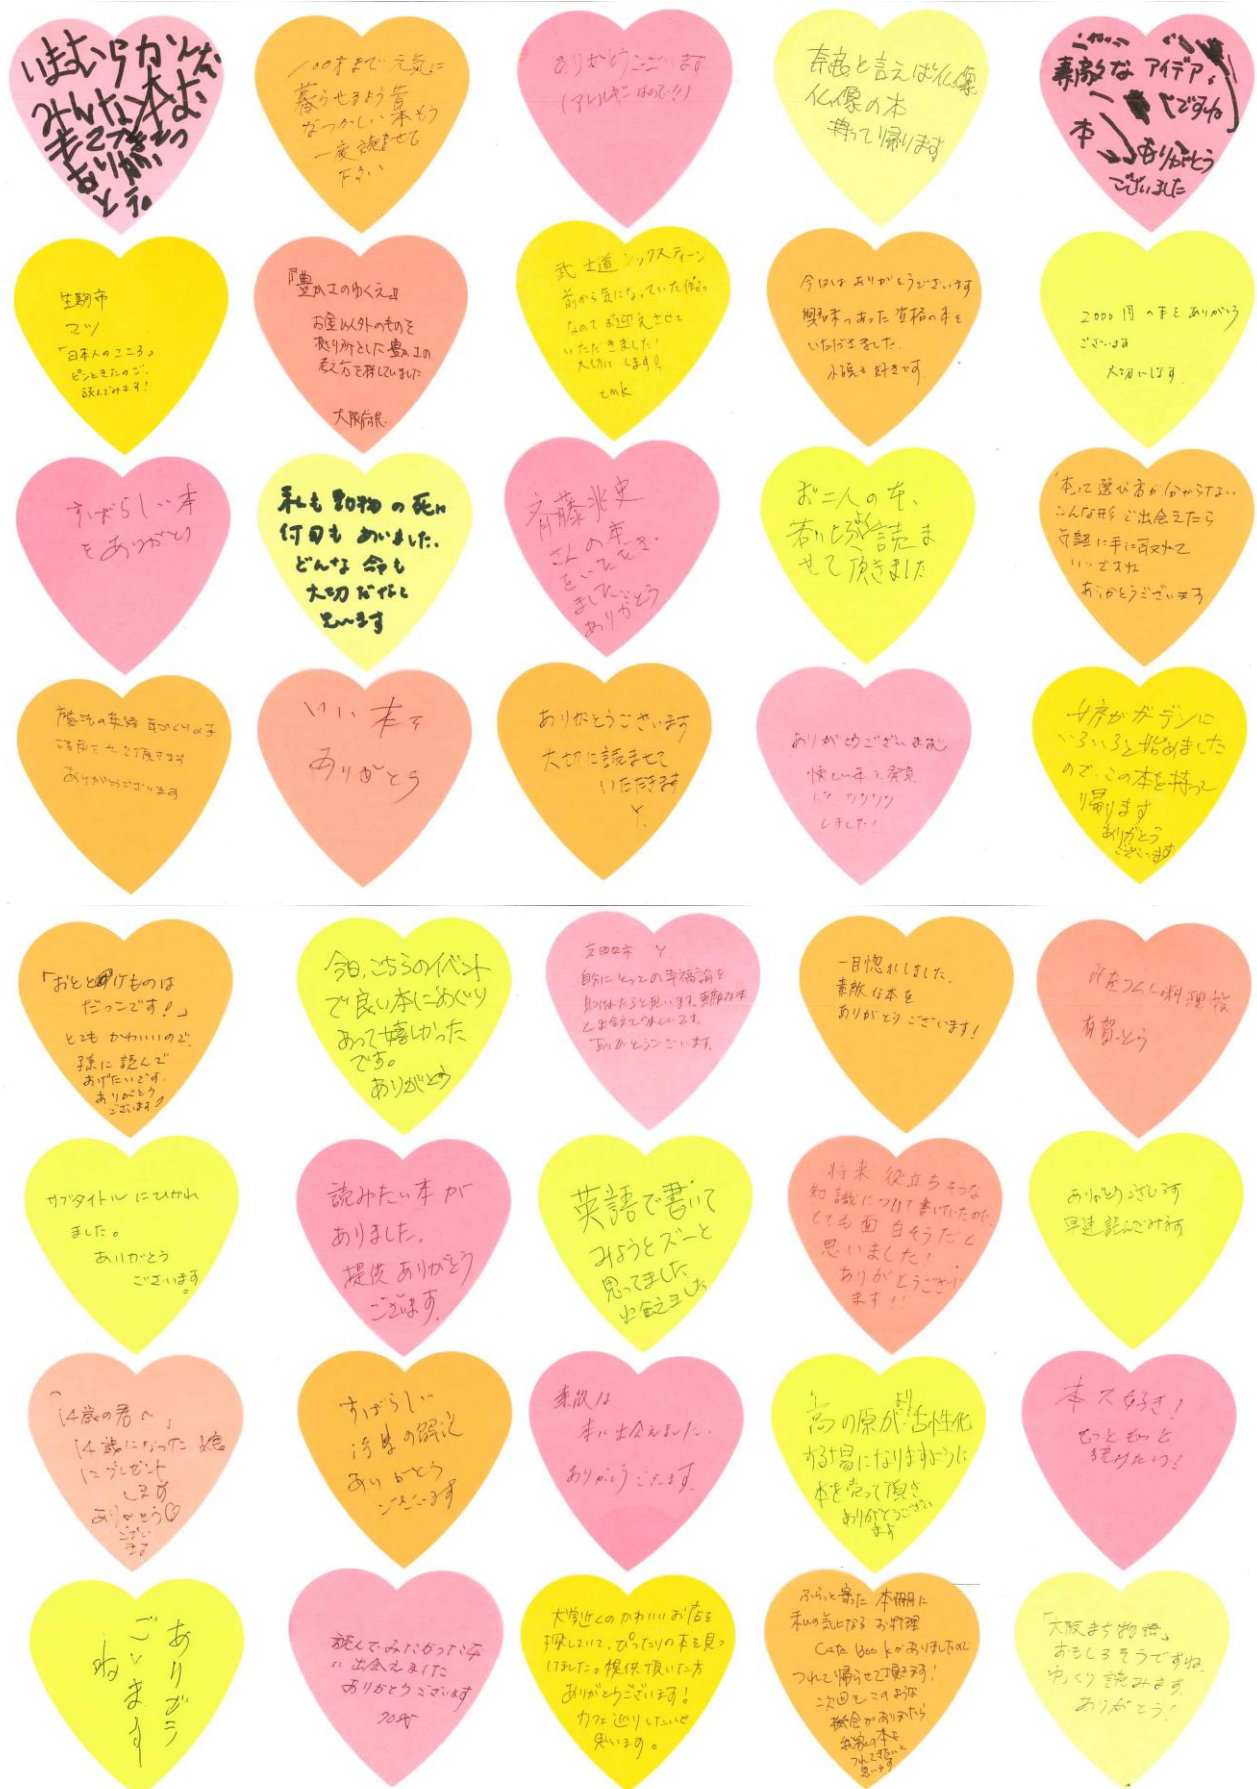 いまむらかんな
みんな本お
ありが
とう。
100才まで元気に
暮らせるよう貴
なつかしい本もう
一度読ませて
下さい
ありがとうございます
(アレルギーなので!!)
奈良と言えば仏像
仏像の本
持って帰ります
素敵なアイデア。
ですね
本
ありがとう
ございました
生駒市
マツ
「日本人のこころ」
ピンときたので、
読んでみます!
『豊かさのゆくえ』
お金以外のものを
拠り所とした豊かさの
考え方を探していました
大阪府民
武士道シックスティーン
前から気になっていた作品
なのでお迎えさせて
いただきました!
大切にします!
emk
今日はありがとうございます
興味のあった資格の本を
いただきました。
小説も好きです。
2000円の本をありがとう
ございます
大切にします
すばらしい本
をありがとう
私も動物の死に
何回もあいました。
どんな命も
大切だなと
思います
斉藤兆史
さんの本
をいただき
ました…
ありがとう
お二人の本、
若い頃読ま
せて頂きました
「本って選び方が分からない
こんな形で出会えたら
気軽に手に取れて
いいですね
ありがとうございます
魔法の英語 耳づくりの本
ありがとうございます
いい本を
ありがとう
ありがとうございます
大切に読ませて
いただきます
Y.
ありがとうございます
懐しい本を発見
しました!
女房がガーデンに
いろいろと始めました
ので、この本を持って
帰ります
ありがとう
ございます
「おととけものは
だっこです!」
とてもかわいいので、
孫に読んで
あげたいです。
ありがとう
ございます♪
今日、こちらのイベント
で良い本にめぐり
あって嬉しかった
です。
ありがとう
Y
自分にとっての幸福論を
見つけたらと思います。素敵な本
と出会えてうれしいです。
ありがとうございます。
一目惚れしました。
素敵な本を
ありがとうございます!
有賀とう
サブタイトルにひかれ
ました。
ありがとう
ございます。
読みたい本が
ありました。
提供ありがとう
ございます。
英語で書いて
みようとズーと
思ってました
出会えました
将来役立ちそうな
知識について書いていたので、
とても面白そうだと
思いました!
ありがとうござい
ます!!
ありがとうございます
早速読んでみます
「14歳の君へ」
14歳になった娘
にプレゼント
します
ありがとう♡
ござい
ます
すばらしい
の解説
ありがとう
ございます
素敵な
本に出会えました。
ありがとうございます。
高の原がより活性化
する場になりますように
本を売って頂き
ありがとうござい
ます
本大好き!
もっともっと
続けたい!
ありがとう
ございます
ね
読んでみたかった本
に出会えました
ありがとうございます
70代
大学近くのかわいいお店を
探していて、ぴったりの本を見つ
けました。提供頂いた方
ありがとうございます!
カフェ巡りしたいと
思います。
ふらっと寄った本棚に
私の気になるお料理
Cafe Bookがありましたので
つれて帰らせて頂きます!
次回もこのような
機会がありましたら
我家の本も
つれて来たいと
思います
「大阪まち物語」
おもしろそうですね。
ゆっくり読みます。
ありがとう!